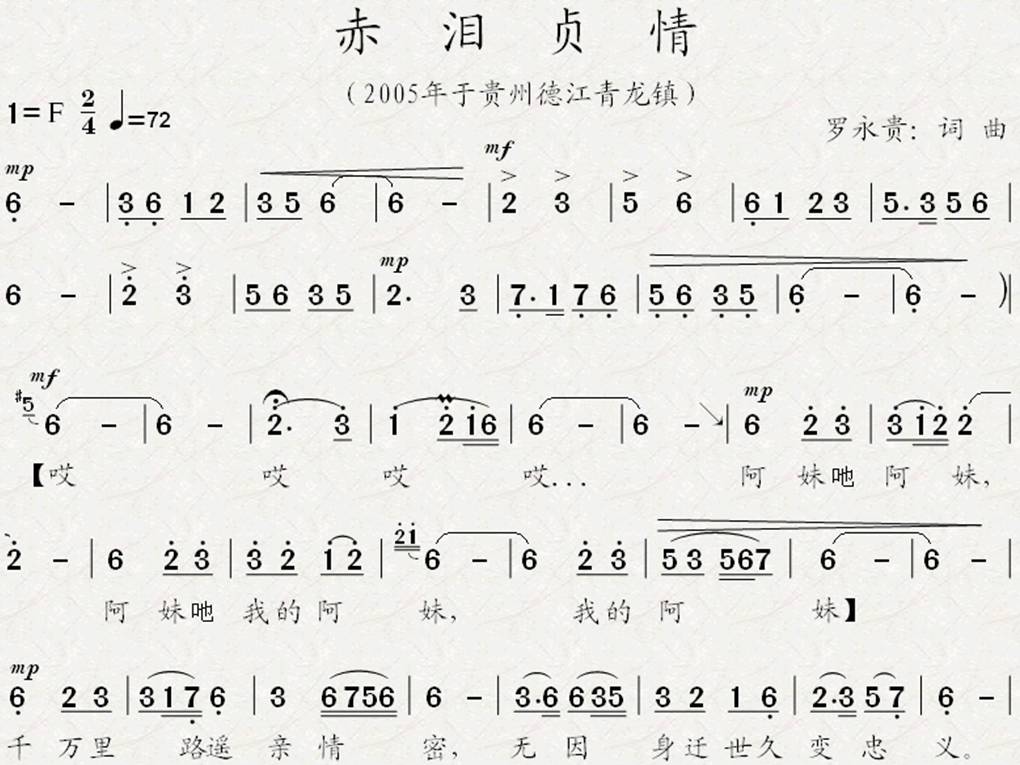 赤泪贞情
（2005年于贵州德江青龙镇）
1=F 2/4 ♩=72
罗永贵：词 曲
mp mf
6 – | 3 6 1 2 | 3 5 6 | 6 – | 2 3 | 5 6 | 6 1 2 3 | 5. 3 5 6 |
mp
6 – | 2 3 | 5 6 3 5 | 2. 3 | 7. 1 7 6 | 5 6 3 5 | 6 – | 6 – )|
mf mp
#5 6 – | 6 – | 2. 3 | 1 2 1 6 | 6 – | 6 – | 6 2 3 | 3 1 2 2 |
【哎 哎 哎 哎... 阿 妹吔 阿 妹，
2 – | 6 2 3 | 3 2 1 2 | 2 1 6 – | 6 2 3 | 5 3 5 6 7 | 6 – | 6 – |
阿 妹吔 我的 阿 妹， 我的 阿 妹】
mp
6 2 3 | 3 1 7 6 | 3 6 7 5 6 | 6 – | 3. 6 6 3 5 | 3 2 1 6 | 2. 3 5 7 | 6 – |
千 万里 路遥 亲 情 密， 无 因 身 迁 世久 变 忠 义。